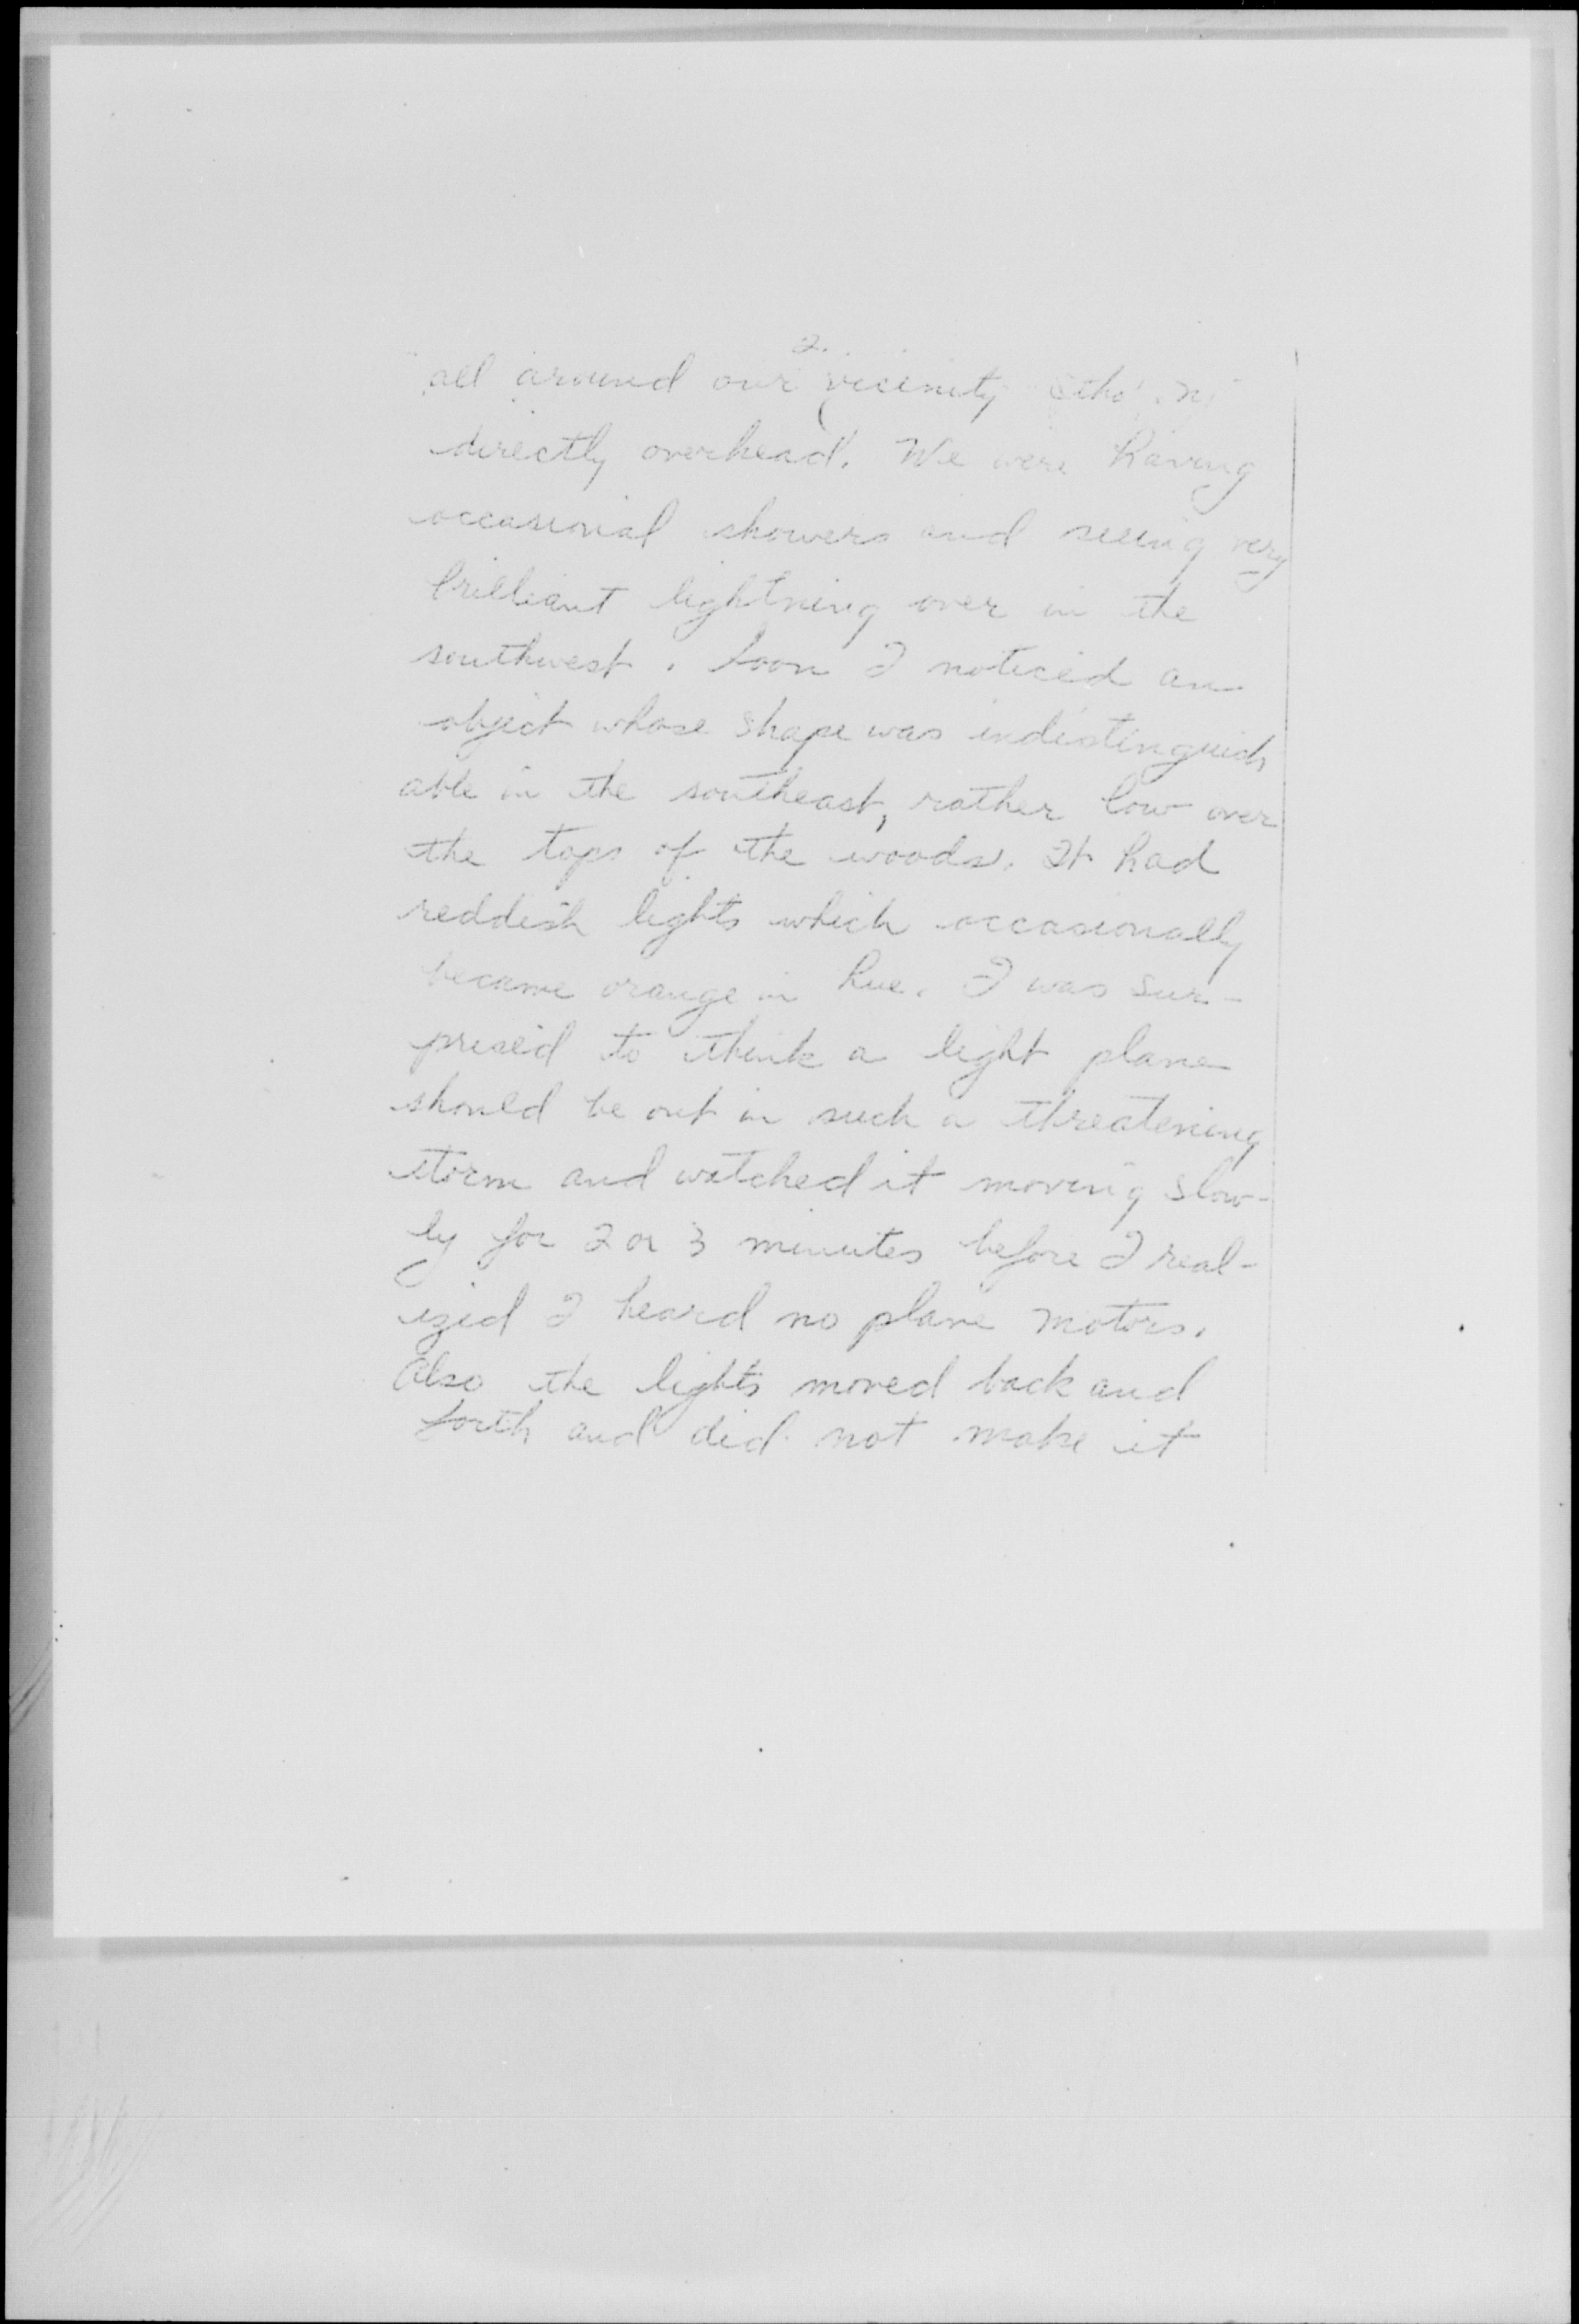 2.
all around our vicinity tho
directly overhead. We were having
occasional showers and seeing very
brilliant lightning over in the
southwest. Soon I noticed an
object whose shape was indistinguish
able in the southeast, rather low over
the tops of the woods. It had
reddish lights which occasionally
became orange in hue. I was sur-
prised to think a light plane
should be out in such a threatening
storm and watched it moving slow-
ly for 2 or 3 minutes before I real-
ized I heard no plane motors.
Also the lights moved back and
forth and did not make it